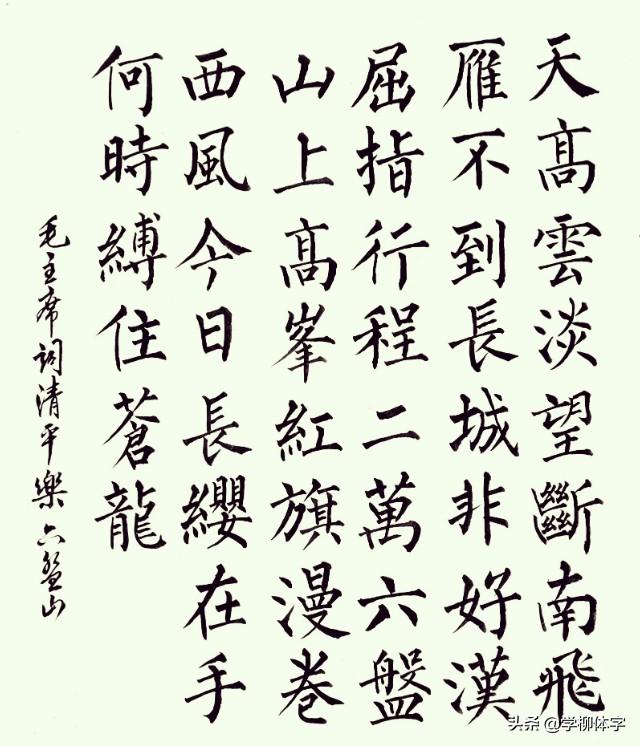 天高雲淡望斷南飛
雁不到長城非好漢
屈指行程二萬六盤
山上高峯紅旗漫卷
西風今日長纓在手
何時縛住蒼龍
毛主席詞清平樂六盤山
头条 @学柳体字